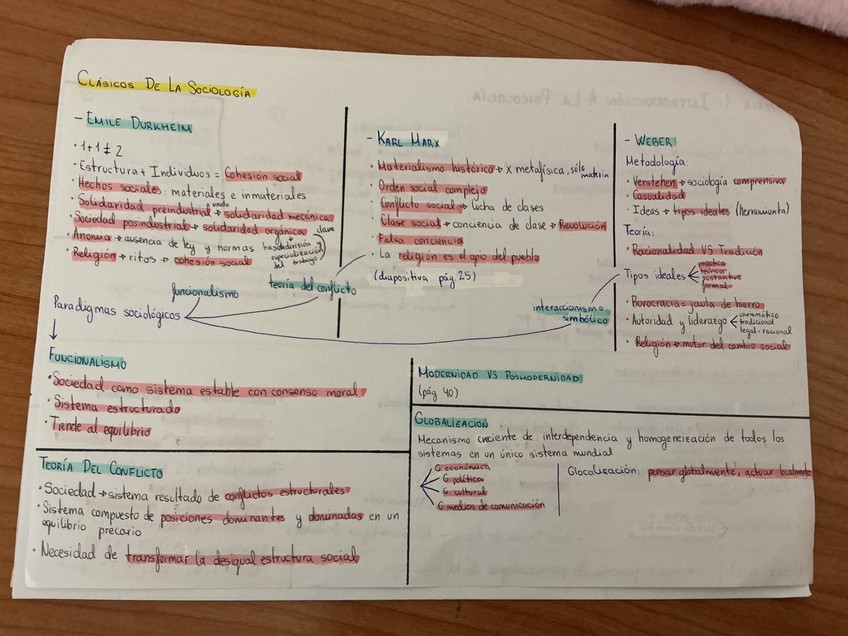 CLÁSICOS DE LA SOCIOLOGÍA
- EMILE DURKHEIM
· 1+1 ≠ 2
· Estructura + Individuos = Cohesión social
· Hechos sociales: materiales e inmateriales
· Solidaridad preindustrial → solidaridad mecánica
· Sociedad posindustrial → solidaridad orgánica
· Anomia → ausencia de ley y normas
clave
división y
especialización
del trabajo
· Religión → ritos → cohesión social
- KARL MARX
· Materialismo histórico → X metafísica, sólo
materia
· Orden social complejo
· Conflicto social → lucha de clases
· Clase social → conciencia de clase → Revolución
· Falsa conciencia
· La religión es el opio del pueblo
(diapositiva pág 25)
- WEBER
Metodología:
· Verstehen → sociología comprensiva
· Casualidad
· Ideas → tipos ideales (herramienta)
Teoría:
· Racionalidad VS Tradición
Tipos ideales
práctica
teórica
sustantiva
formal
· Burocracia = jaula de hierro
· Autoridad y liderazgo
carismático
tradicional
legal-racional
· Religión → motor del cambio social
Paradigmas sociológicos
funcionalismo
teoría del conflicto
interaccionismo
simbólico
FUNCIONALISMO
· Sociedad como sistema estable con consenso moral
· Sistema estructurado
· Tiende al equilibrio
TEORÍA DEL CONFLICTO
· Sociedad → sistema resultado de conflictos estructurales
· Sistema compuesto de posiciones dominantes y dominadas en un
equilibrio precario
· Necesidad de transformar la desigual estructura social
MODERNIDAD VS POSMODERNIDAD
(pág 40)
GLOBALIZACIÓN
Mecanismo creciente de interdependencia y homogeneización de todos los
sistemas en un único sistema mundial
G. económica
G. política
G. cultural
G. medios de comunicación
Glocalización: pensar globalmente, actuar localmente